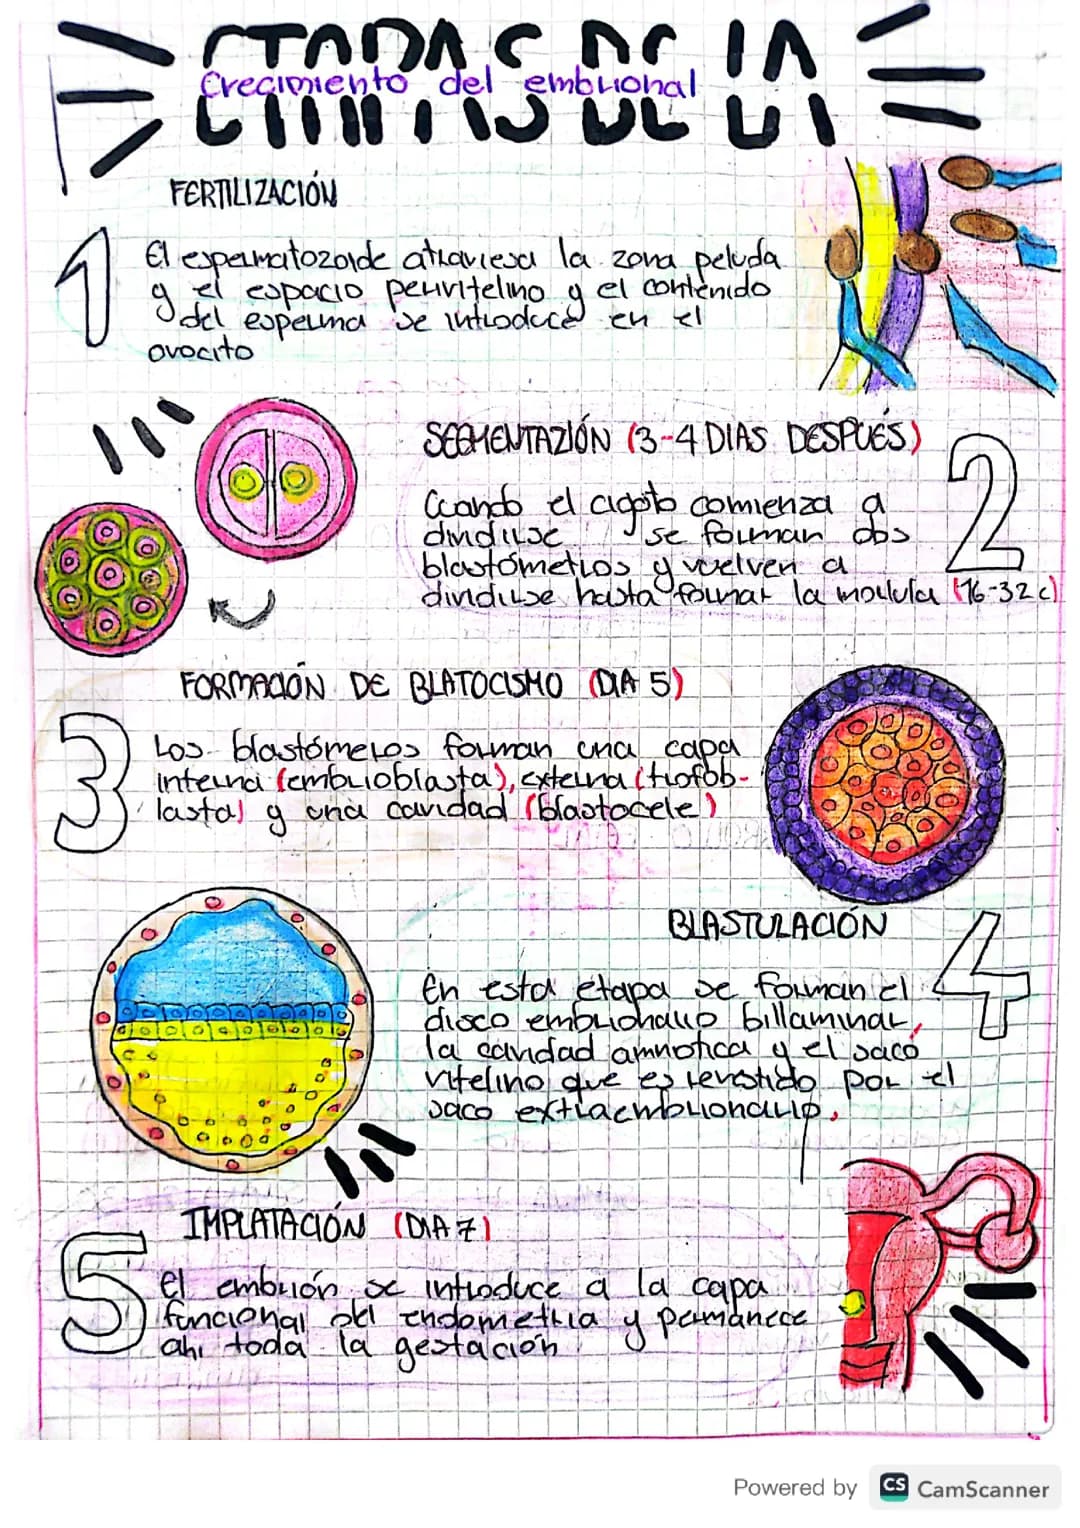 ETAPAS DE LA
Crecimiento del embrional
FERTILIZACIÓN
1
El espermatozoide atraviesa la zona peluda
y el espacio perivitelino y el contenido
del esperma se introduce en el
ovocito
SEGMENTAZIÓN (3-4 DIAS DESPUÉS)
2
Cuando el cigoto comienza a
dividirse se forman dos
blastómetros y vuelven a
dividirse hasta formar la morula (16-32 c)
FORMACIÓN DE BLATOCISMO (DIA 5)
3
Los blastómeros forman una capa
interna (embrioblasta), externa (trofob-
lasta) y una cavidad (blastocele)
BLASTULACIÓN
4
En esta etapa se forman el
disco embrionario billaminar,
la cavidad amnotica y el saco
vitelino que es revestido por el
saco extraembrionario.
IMPLATACIÓN (DIA 7)
5
El embrión se introduce a la capa
funcional del endometria y permanece
ahi toda la gestación
Powered by CS CamScanner